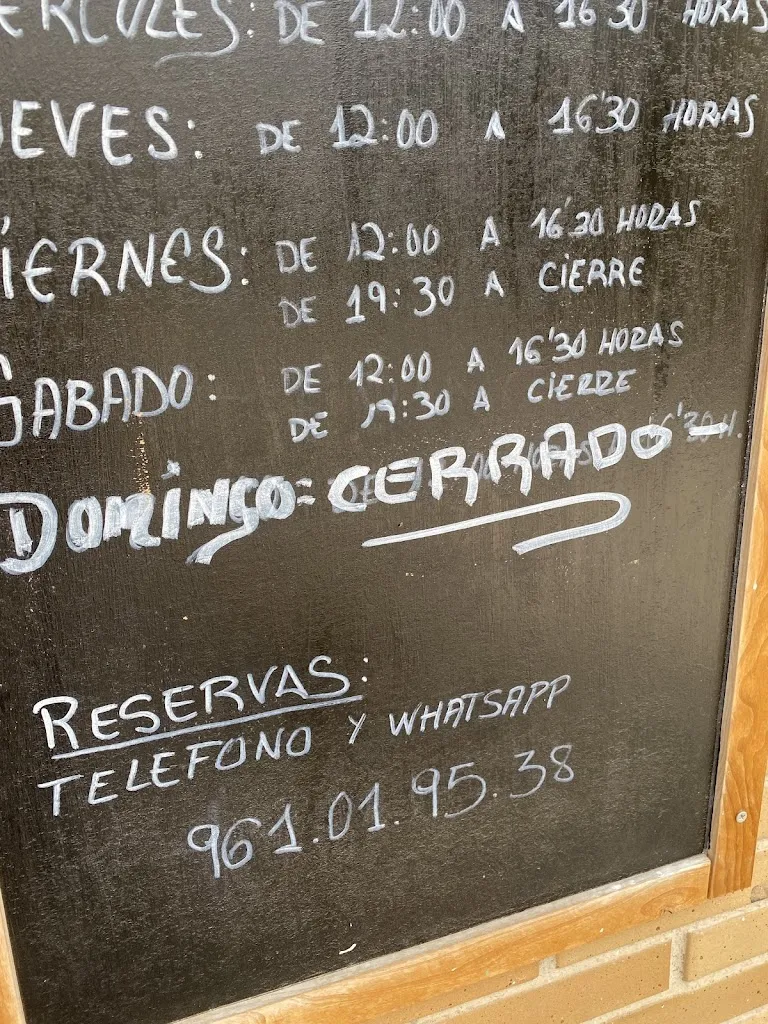 ERCOLES: DE 12:00 A 16'30 HORAS
UEVES: DE 12:00 A 16'30 HORAS
IERNES: DE 12:00 A 16'30 HORAS
DE 19:30 A CIERRE
SABADO: DE 12:00 A 16'30 HORAS
DE 19:30 A CIERRE
DOMINGO: CERRADO 16'30 H.
RESERVAS:
TELEFONO Y WHATSAPP
961.01.95.38